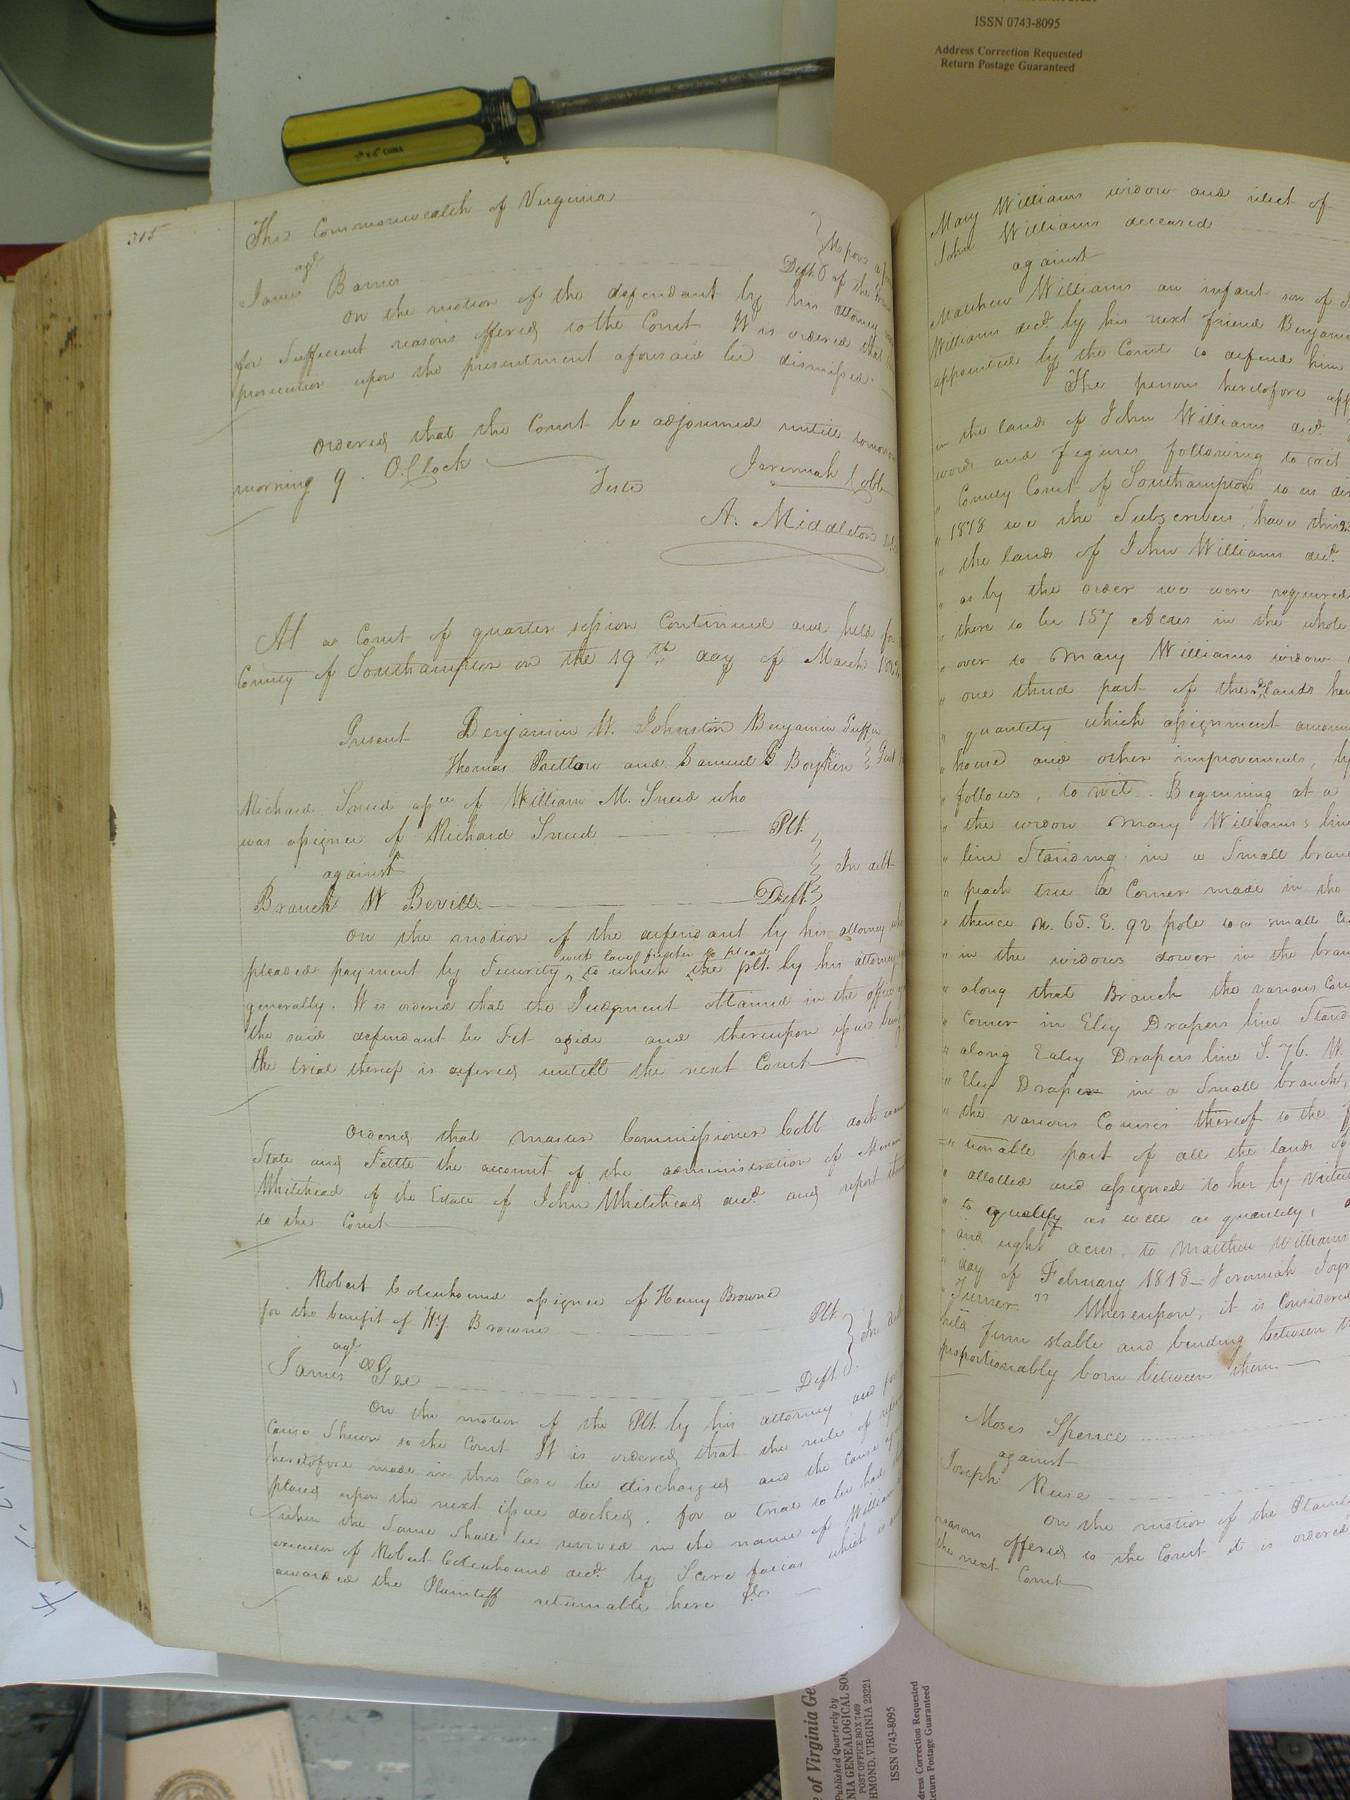 ISSN 0743-8095
Address Correction Requested
Return Postage Guaranteed
315
The Commonwealth of Virginia
agt
James Barnes Deft
On the motion of the defendant by his attorney
for Sufficient reasons offered to the Court It is ordered that
prosecution upon the presentment aforesaid be dismissed
Ordered that the Court be adjourned untill tomorrow
morning 9 O.Clock
Teste Jeremiah Cobb
A. Middleton
At a Court of quarter session Continued and held for
County of Southampton on the 19th day of March
Present Benjamin W. Johnston Benjamin
Thomas Pretlow and Samuel B Boykin
Richard Sneed assee of William M. Sneed who
was assignee of Richard Sneed Plt.
against In debt
Branch W Beville Deft.
On the motion of the defendant by his attorney who
with leave further to plead
pleaded payment by Security, to which the plt. by his attorney
generally. It is ordered that the Judgment obtained in the office
the said defendant be Set aside and thereupon issue being
the trial thereof is defered untill the next Court
Ordered that master Commissioner Cobb doth
State and Settle the account of the administration of
Whitehead of the Estate of John Whitehead decd. and report
to the Court
Robert Colquhound assignee of Henry Browne
for the benefit of Wy. Browne Plt.
agt
James Gee Deft
On the motion of the Plt. by his attorney and for
cause Shewn to the Court It is ordered that the rule of
heretofore made in this Case be discharged and the cause
placed upon the next issue docked. for a trial to be had
when the Same Shall be revived in the name of William
executor of Robert Colquhound decd. by Scire facias which is
awarded the Plaintiff returnable here &c
Mary Williams widow and relict of
John Williams deceased
against
Matthew Williams an infant son of
Williams decd. by his next friend
appointed by the Court to defend him
The persons heretofore
the land of John Williams decd.
words and figures following to wit
County Court of Southampton to us
1818 we the Subscribers have this
the lands of John Williams decd.
as by the order we were required
there to be 157 Acres in the whole
over to Mary Williams widow
one third part of the lands
quantity which assignment
house and other improvements,
follows, to wit. Beginning at a
the widow Mary Williams line
line Standing in a Small branch
peach tree a Corner made in the
thence N. 65. E. 92 pole to a small
in the widows dower in the
along that Branch the various
Corner in Eley Drapers line
along Ealey Drapers line S. 76. W.
Eley Draper in a Small branch,
the various Courses thereof to the
tionable part of all the lands of
allotted and assigned to her by virtue
to quality as well as quantity,
and eight acres, to Matthew Williams
day of February 1818 Jeremiah
Turner" Whereupon, it is Considered
held firm stable and binding between
proportionably born between them
Moses Spence
against
Joseph Reese
On the motion of the
reasons offered to the Court it is ordered
the next Court
of Virginia
Published Quarterly by
POST OFFICE BOX 7469
ISSN 0743-8095
Return Postage Guaranteed